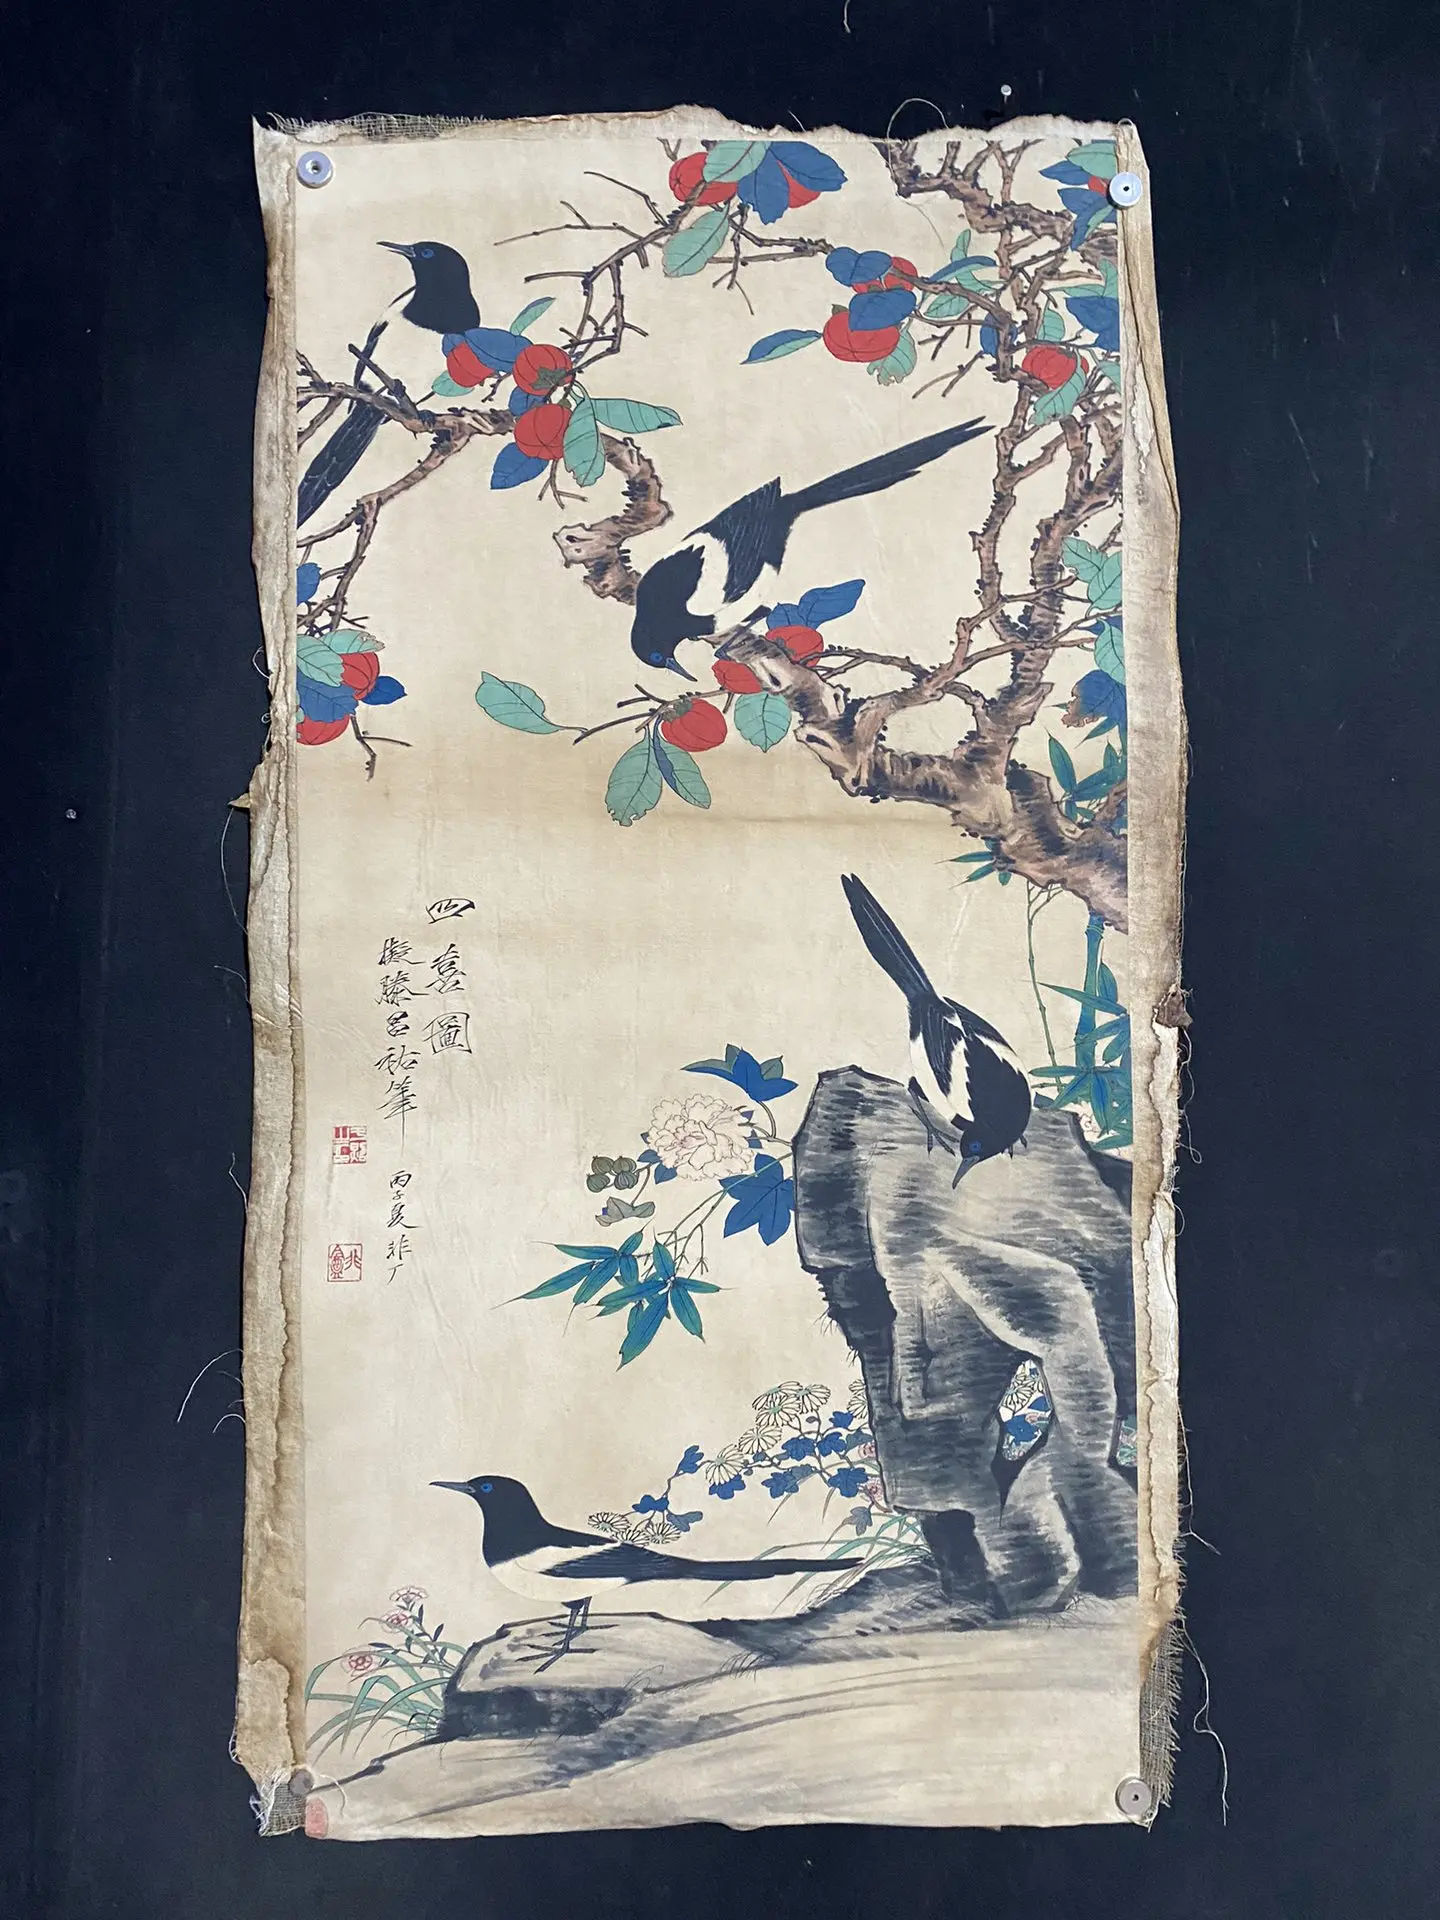 四喜圖
擬滕昌祐筆
丙子夏非厂